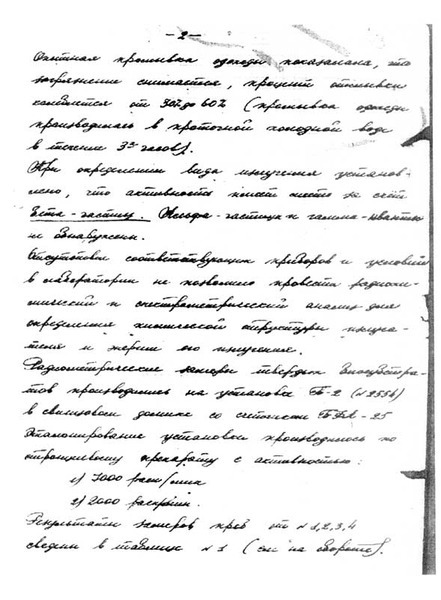 - 2 -
Опытная промывка одежды показала, что
загрязнение снимается, процент отмывки
колеблется от 30% до 60% (промывка одежды
производилась в проточной холодной воде
в течение 3х часов).
При определении вида излучения установ-
лено, что активность имеет место за счёт
Бета-частиц. Альфа-частиц и гамма-квантов
не обнаружено.
Отсутствие соответствующих приборов и условий
в лаборатории не позволило провести радиохи-
мический и спектрометрический анализ для
определения химической структуры излуча-
теля и энергии его излучения.
Радиометрические замеры твердых биосубстра-
тов производились на установке Б-2 (№ 2554)
в свинцовом домике со счетчиком БФЛ-25
Эталонирование установки производилось по
стронциевому препарату с активностью:
1) 5000 расп/мин
2) 2000 расп/мин.
Результаты замеров проб от № 1,2,3,4
сведены в таблицу № 1 (см. на обороте).